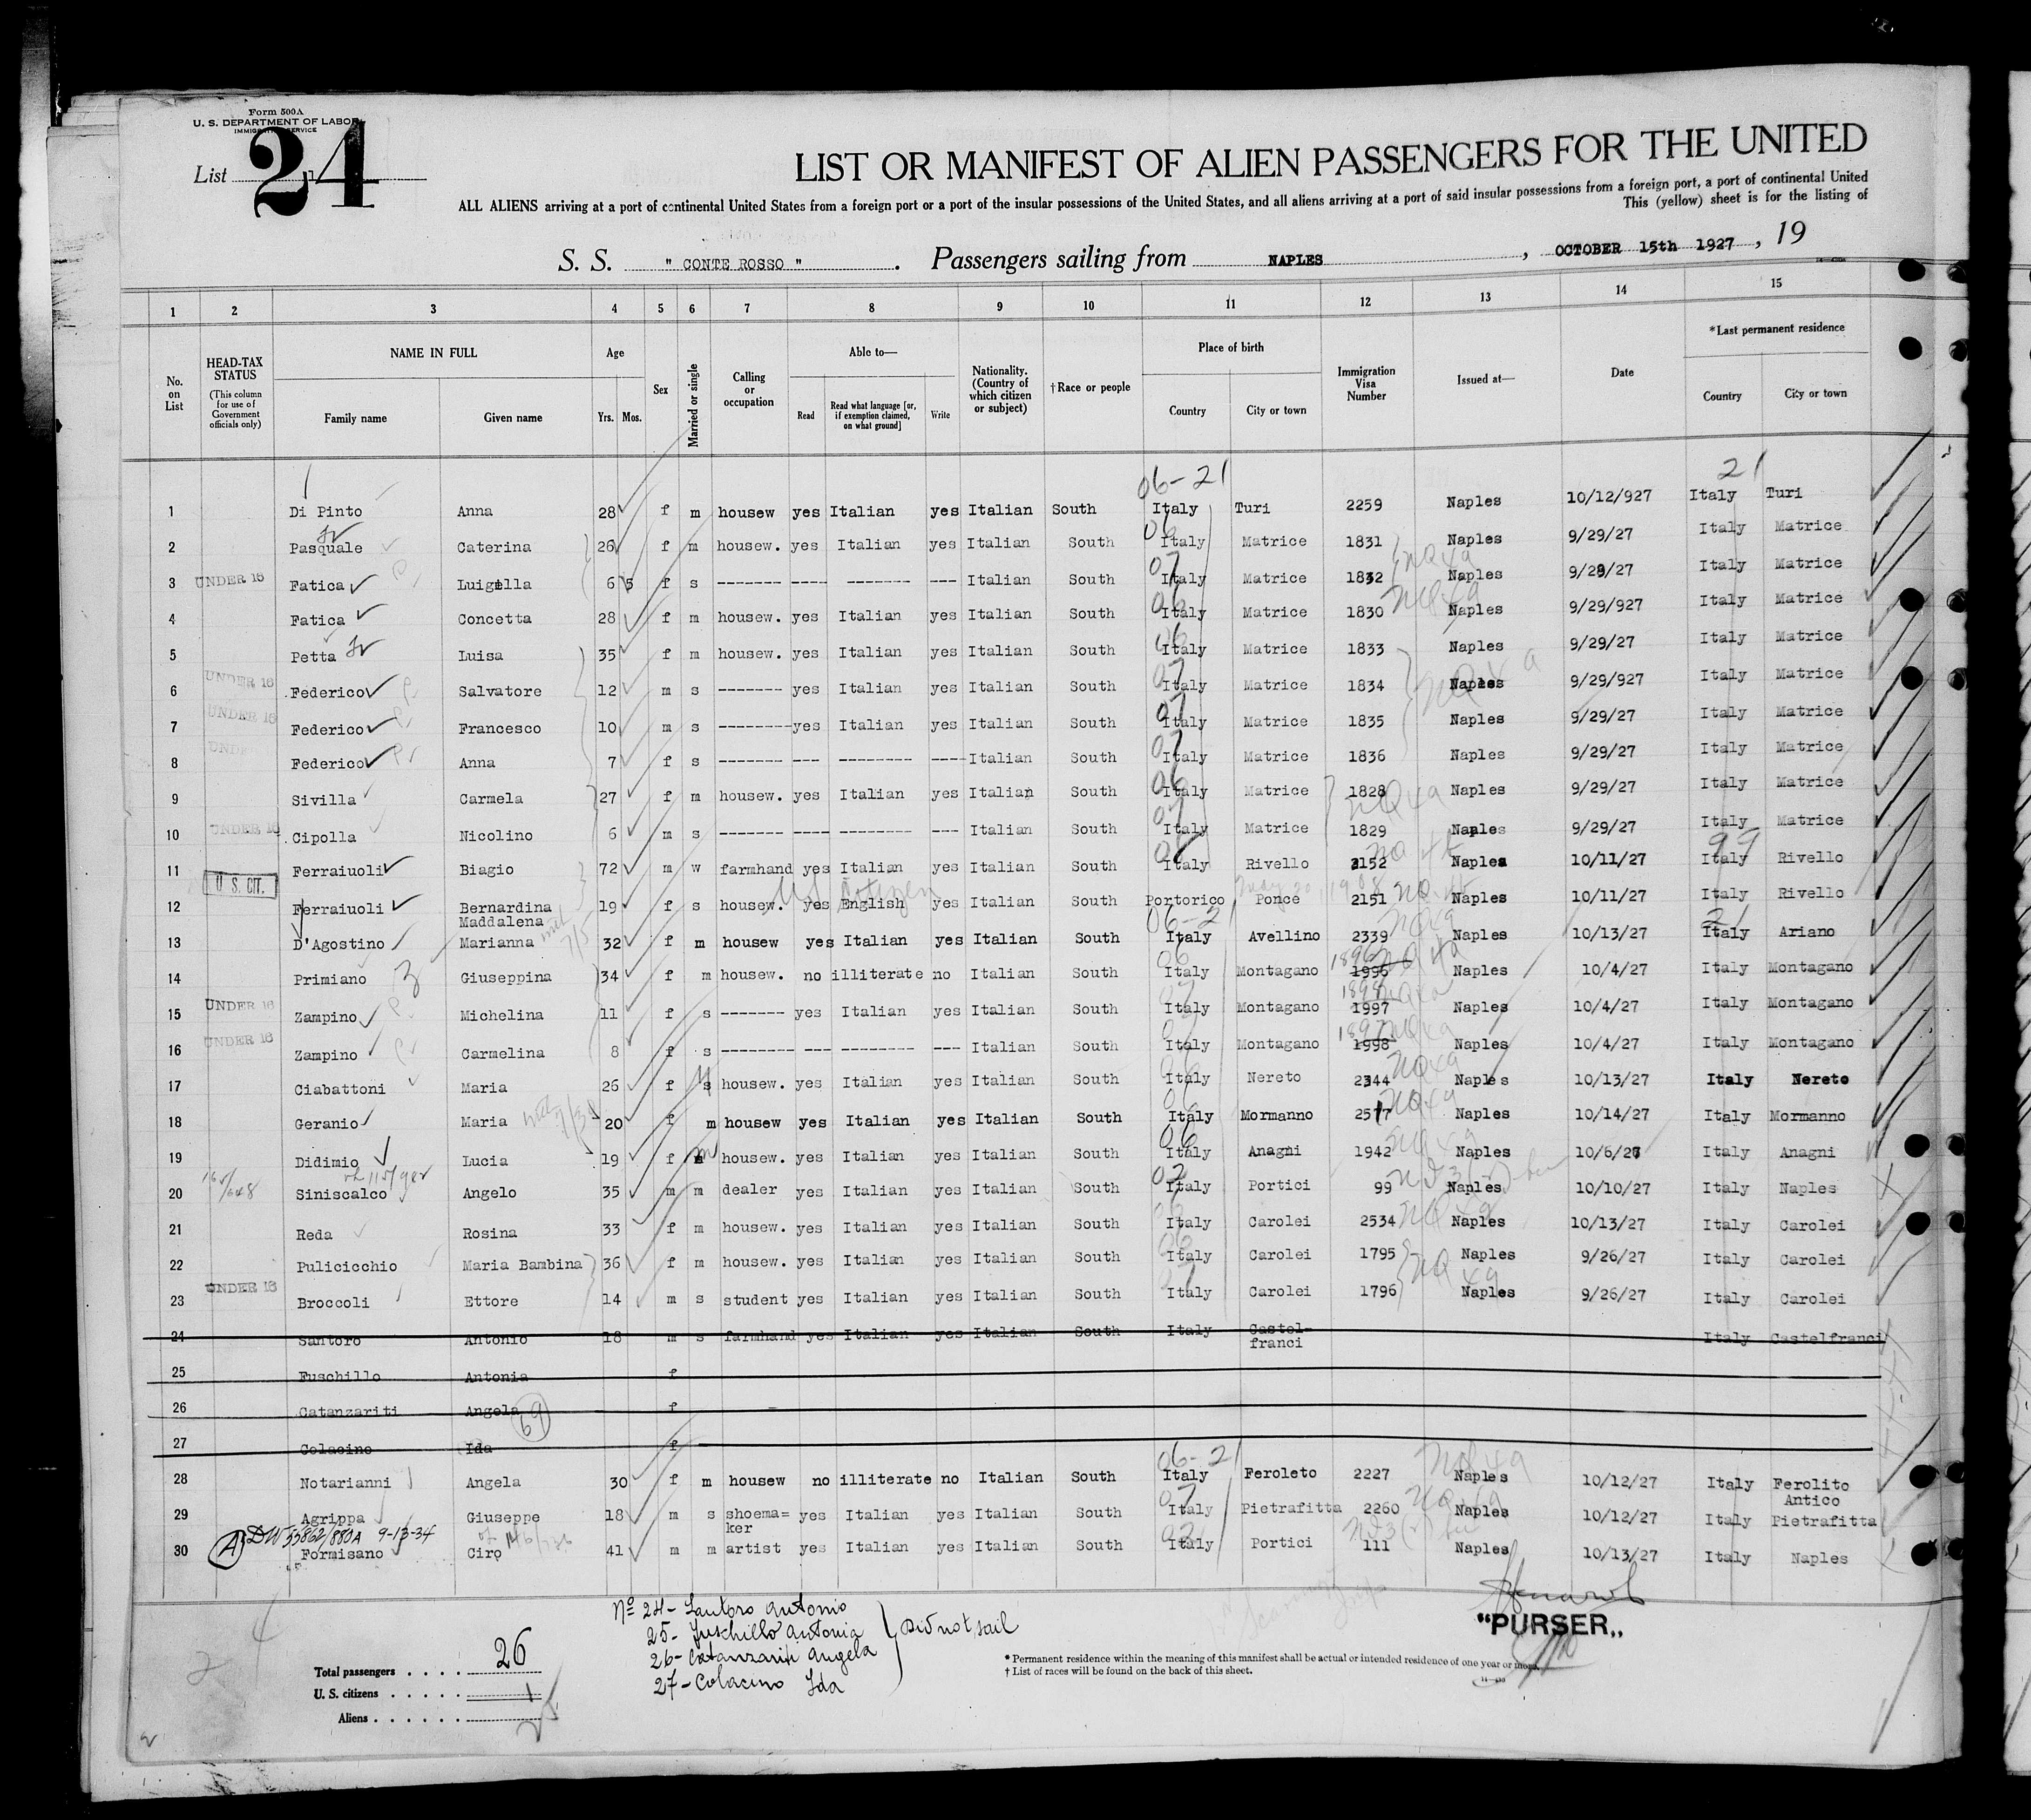 Form 500A
U. S. DEPARTMENT OF LABOR
IMMIGRATION SERVICE
List 24
LIST OR MANIFEST OF ALIEN PASSENGERS FOR THE UNITED
ALL ALIENS arriving at a port of continental United States from a foreign port or a port of the insular possessions of the United States, and all aliens arriving at a port of said insular possessions from a foreign port, a port of continental United
This (yellow) sheet is for the listing of
S. S. " CONTE ROSSO " . Passengers sailing from NAPLES , OCTOBER 15th 1927 , 19
1 2 3 4 5 6 7 8 9 10 11 12 13 14 15
No. on List
HEAD-TAX STATUS (This column for use of Government officials only)
NAME IN FULL Family name Given name
Age Yrs. Mos.
Sex
Married or single
Calling or occupation
Able to— Read Read what language [or, if exemption claimed, on what ground] Write
Nationality. (Country of which citizen or subject)
†Race or people
Place of birth Country City or town
Immigration Visa Number
Issued at—
Date
*Last permanent residence Country City or town
06-21 21
1 Di Pinto Anna 28 f m housew yes Italian yes Italian South Italy Turi 2259 Naples 10/12/927 Italy Turi
2 Pasquale Caterina 26 f m housew. yes Italian yes Italian South 06 Italy Matrice 1831 Naples 9/29/27 Italy Matrice
3 UNDER 16 Fatica Luigella 6 5 f s ------- ---- ------- --- Italian South 07 Italy Matrice 1832 Naples 9/29/27 Italy Matrice
4 Fatica Concetta 28 f m housew. yes Italian yes Italian South 06 Italy Matrice 1830 Naples 9/29/927 Italy Matrice
5 Petta Luisa 35 f m housew. yes Italian yes Italian South 06 Italy Matrice 1833 Naples 9/29/27 Italy Matrice
6 UNDER 16 Federico Salvatore 12 m s ------- yes Italian yes Italian South 07 Italy Matrice 1834 Naples 9/29/927 Italy Matrice
7 UNDER 16 Federico Francesco 10 m s -------- yes Italian yes Italian South 07 Italy Matrice 1835 Naples 9/29/27 Italy Matrice
8 UNDER Federico Anna 7 f s ------- --- -------- ---- Italian South 07 Italy Matrice 1836 Naples 9/29/27 Italy Matrice
9 Sivilla Carmela 27 f m housew. yes Italian yes Italian South 06 Italy Matrice 1828 Naples 9/29/27 Italy Matrice
10 UNDER 16 Cipolla Nicolino 6 m s ------- ---- -------- --- Italian South 07 Italy Matrice 1829 Naples 9/29/27 Italy Matrice
99
11 Ferraiuoli Biagio 72 m w farmhand yes Italian yes Italian South Italy Rivello 2152 Naples 10/11/27 Italy Rivello
U. S. CIT. US Citizen May 20, 1908
12 Ferraiuoli Bernardina Maddalena 19 f s housew. yes English yes Italian South Portorico Ponce 2151 Naples 10/11/27 Italy Rivello
06-2 21
13 D'Agostino Marianna 32 f m housew yes Italian yes Italian South Italy Avellino 2339 Naples 10/13/27 Italy Ariano
14 Primiano Giuseppina 34 f m housew. no illiterate no Italian South Italy Montagano 1896 1996 Naples 10/4/27 Italy Montagano
15 UNDER 16 Zampino Michelina 11 f s ------- yes Italian yes Italian South Italy Montagano 1898 1997 Naples 10/4/27 Italy Montagano
16 UNDER 16 Zampino Carmelina 8 f s -------- --- -------- --- Italian South Italy Montagano 1897 1998 Naples 10/4/27 Italy Montagano
17 Ciabattoni Maria 26 f s housew. yes Italian yes Italian South Italy Nereto 2344 Naples 10/13/27 Italy Nereto
18 Geranio Maria 20 f m housew yes Italian yes Italian South Italy Mormanno 2517 Naples 10/14/27 Italy Mormanno
19 Didimio Lucia 19 f m housew. yes Italian yes Italian South 06 Italy Anagni 1942 Naples 10/6/27 Italy Anagni
20 Siniscalco Angelo 35 m m dealer yes Italian yes Italian South 02 Italy Portici 99 Naples 10/10/27 Italy Naples
21 Reda Rosina 33 f m housew. yes Italian yes Italian South Italy Carolei 2534 Naples 10/13/27 Italy Carolei
22 Pulicicchio Maria Bambina 36 f m housew. yes Italian yes Italian South 06 Italy Carolei 1795 Naples 9/26/27 Italy Carolei
23 UNDER 16 Broccoli Ettore 14 m s student yes Italian yes Italian South Italy Carolei 1796 Naples 9/26/27 Italy Carolei
24 Santoro Antonio 18 m s farmhand yes Italian yes Italian South Italy Castel-franci Italy Castelfranci
25 Fuschillo Antonia f
26 Catanzariti Angela f
69
27 Colacino Ida f
06-21
28 Notarianni Angela 30 f m housew no illiterate no Italian South Italy Feroleto 2227 Naples 10/12/27 Italy Ferolito Antico
29 Agrippa Giuseppe 18 m s shoema=ker yes Italian yes Italian South 07 Italy Pietrafitta 2260 Naples 10/12/27 Italy Pietrafitta
(A) DW 55862/880A 9-13-34
30 Formisano Ciro 41 m m artist yes Italian yes Italian South 02 Italy Portici 111 Naples 10/13/27 Italy Naples
Nº 24- Santoro Antonio
25- Fuschillo Antonia
26- Catanzariti Angela
27- Colacino Ida
Did not sail
"PURSER„
Total passengers . . . . 26
U. S. citizens . . . . . 1
Aliens . . . . . . 25
* Permanent residence within the meaning of this manifest shall be actual or intended residence of one year or more.
† List of races will be found on the back of this sheet.